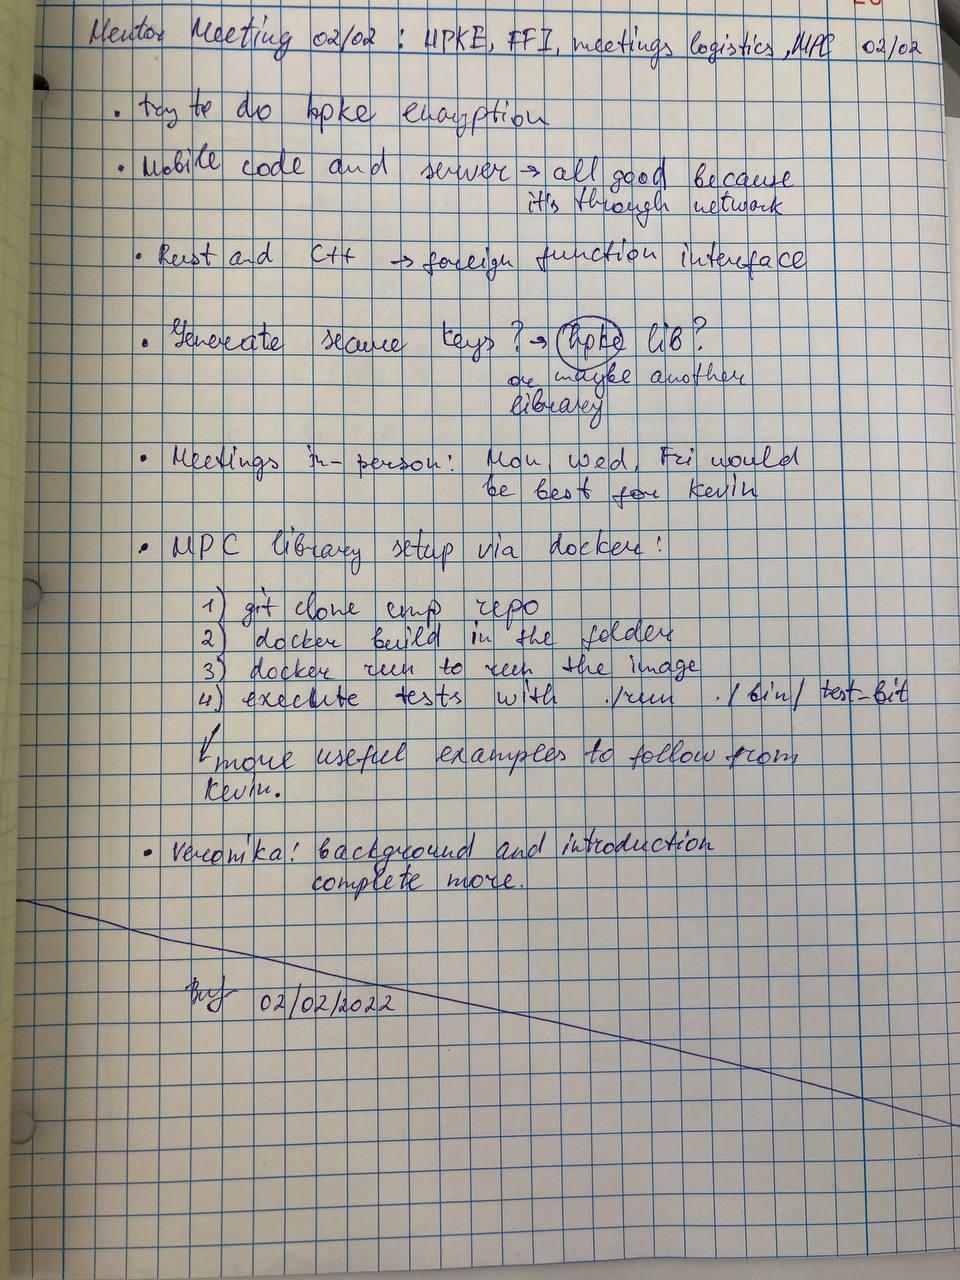 Mentor Meeting 02/02 : HPKE, FFI, meetings logistics, MPC 02/02
• try to do hpke encryption
• Mobile code and server → all good because
it's through network
• Rust and C++ → foreign function interface
• Generate secure keys ? → hpke lib?
or maybe another
library
• Meetings in-person: Mon, Wed, Fri would
be best for Kevin
• MPC library setup via docker:
1) git clone emp repo
2) docker build in the folder
3) docker run to run the image
4) execute tests with ./run ./bin/test-bit
more useful examples to follow from
Kevin.
• Veronika: background and introduction
complete more.
02/02/2022